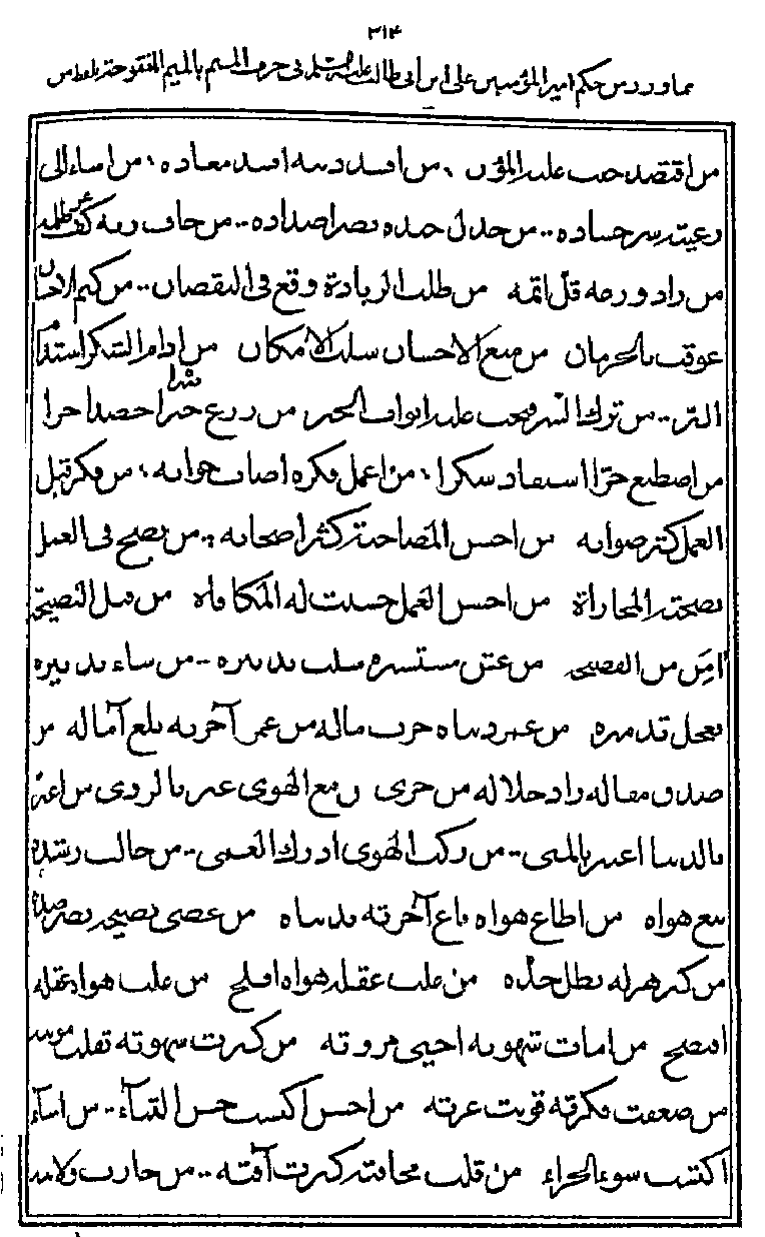 ٣١٤
مما ورد من حكم امير المؤمنين علي ابن ابي طالب عليه السلام في حرف الميم بالميم المفتوحة بلفظ من
من اقتصد خفت عليه المؤن ، من افسد دينه افسد معاده ، من اساء الى
رعيته سر حساده .. من خذل جنده نصر اضداده .. من خاف ربه كف عن ظلمه
من زاد ورعه قل اثمه من طلب الزيادة وقع في النقصان .. من كتم الاحسان
عوقب بالحرمان من منع الاحسان سلب الامكان من ادام الشكر استدام
البر .. من ترك الشر فتحت عليه ابواب الخير من زرع خيرا حصد اجرا
من اصطنع حرا استفاد شكرا ، من اعمل فكره اصاب جوابه ، من فكر قبل
العمل كثر صوابه من احسن المصاحبة كثر اصحابه .. من نصح في العمل
نصحته المجازاة من احسن العمل حسنت له المكافاة من قبل النصيحة
امن من الفضيحة من غش مستشيره سلب تدبيره .. من ساء تدبيره
تعجل تدميره من عمر دنياه خرب ماله من عمر آخرته بلغ آماله من
صدق مقاله زاد جلاله من جرى مع الهوى عثر بالردى من اغتر
بالدنيا اغتر بالمنى .. من ركب الهوى ادرك العمى .. من خالف رشده
تبع هواه من اطاع هواه باع آخرته بدنياه من عصى نصيحه نصر ضده
من كثر هزله بطل جده من غلب عقله هواه افلح من غلب هواه عقله
افتضح من امات شهوته احيى مروته من كثرت شهوته ثقلت مؤنته
من ضعفت فكرته قويت غرته من احسن اكتسب حسن الثناء .. من اساء
اكتسب سوء الجزاء من قلت مخافته كثرت آفته .. من جارت ولايته